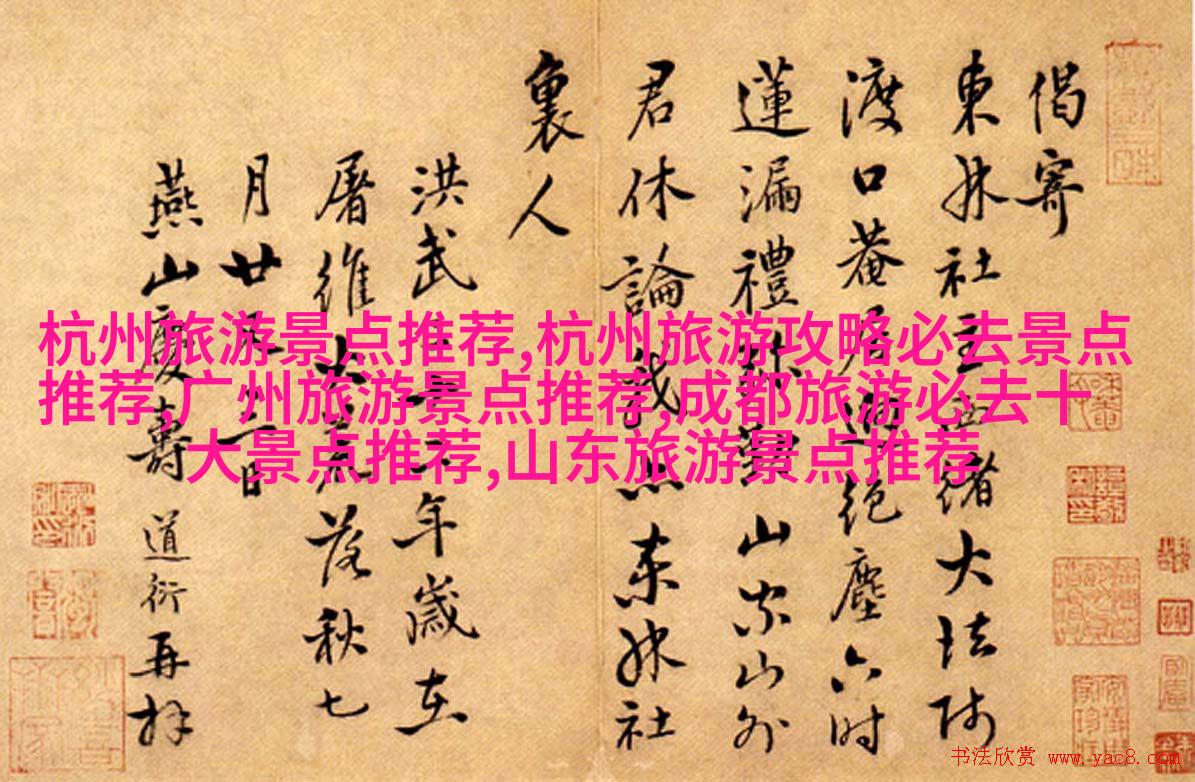 偈寄
東林社主緒大法師
渡口菴居迥絕塵六時
蓮漏禮山家山外
君休論我東林社
裏人
洪武年歲在
屠維大荒落秋七
月廿一日
燕山慶壽道衍再拜
杭州旅游景点推荐,杭州旅游攻略必去景点
推荐,广州旅游景点推荐,成都旅游必去十
大景点推荐,山东旅游景点推荐
书法欣赏 www.yac8.com